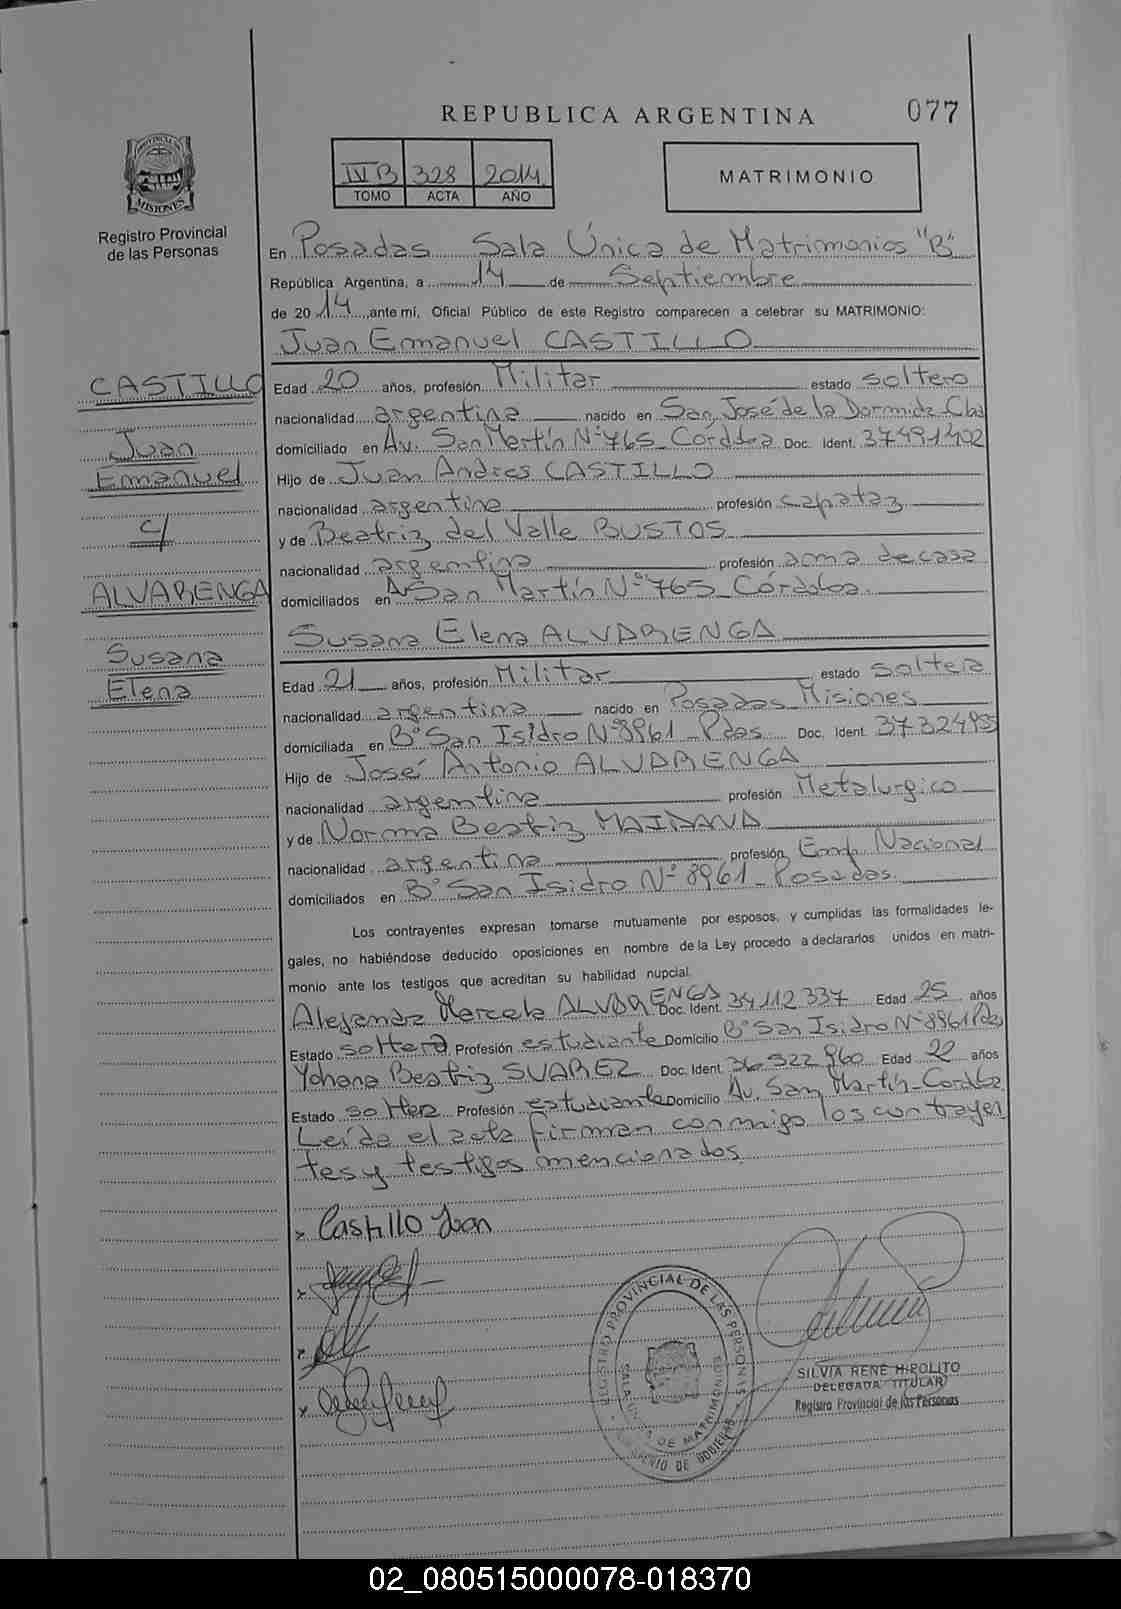 REPUBLICA ARGENTINA 077
PROVINCIA DE
MISIONES
Registro Provincial
de las Personas
IV B 328 2014
TOMO ACTA AÑO
MATRIMONIO
En Posadas Sala Única de Matrimonios "B"
República Argentina, a 14 de Septiembre
de 2014, ante mí, Oficial Público de este Registro comparecen a celebrar su MATRIMONIO:
Juan Emanuel CASTILLO
CASTILLO
Juan
Emanuel
c/
ALVARENGA
Susana
Elena
Edad 20 años, profesión Militar estado soltero
nacionalidad argentina nacido en San José de la Dormida Cba
domiciliado en Av. San Martín N° 765 Córdoba Doc. Ident. 37491402
Hijo de Juan Andres CASTILLO
nacionalidad argentina profesión capataz
y de Beatriz del Valle BUSTOS
nacionalidad argentina profesión ama de casa
domiciliados en Av San Martín N° 765 Córdoba
Susana Elena ALVARENGA
Edad 21 años, profesión Militar estado soltera
nacionalidad argentina nacido en Posadas Misiones
domiciliada en B° San Isidro N° 8961 Pdas Doc. Ident. 37324935
Hijo de José Antonio ALVARENGA
nacionalidad argentina profesión Metalurgico
y de Norma Beatriz MAIDANA
nacionalidad argentina profesión Emp. Nacional
domiciliados en B° San Isidro N° 8961 Posadas
Los contrayentes expresan tomarse mutuamente por esposos, y cumplidas las formalidades le-
gales, no habiéndose deducido oposiciones en nombre de la Ley procedo a declararlos unidos en matri-
monio ante los testigos que acreditan su habilidad nupcial
Alejandra Marcela ALVARENGA Doc. Ident. 34112337 Edad 25 años
Estado soltera Profesión estudiante Domicilio B° San Isidro N° 8961 Pdas
Yohana Beatriz SUAREZ Doc. Ident. 36322860 Edad 22 años
Estado soltera Profesión estudiante Domicilio Av. San Martín-Cordoba
Leída el acta firman conmigo los contrayen
tes y testigos mencionados
x Castillo Juan
REGISTRO PROVINCIAL DE LAS PERSONAS
SALA UNICA DE MATRIMONIOS
SILVIA RENE HIPOLITO
DELEGADA TITULAR
Registro Provincial de las Personas
02_080515000078-018370